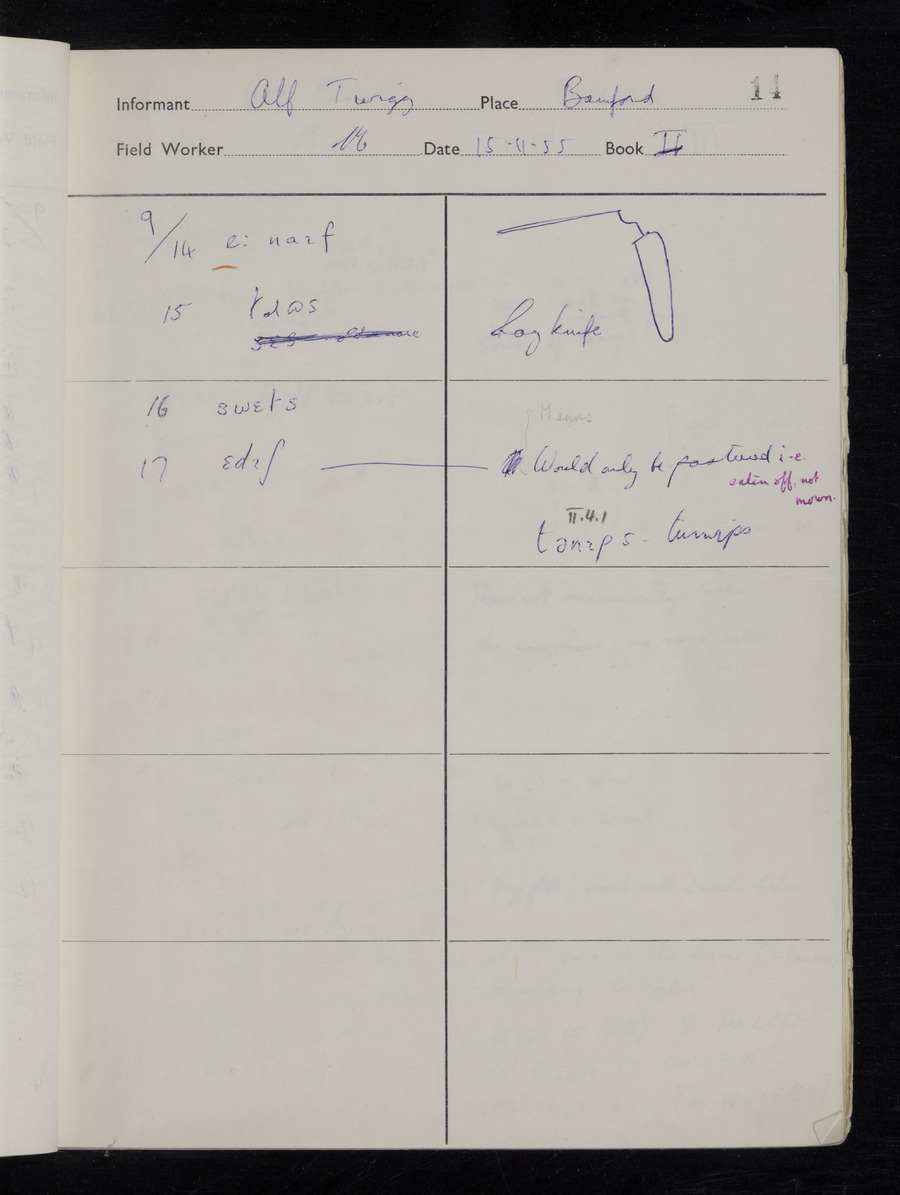 Informant Alf Twigg Place Bamford 14
Field Worker Date 15-11-55 Book II
9/14 e: naɪf
hay knife
15
16 swɛts
Means
17 ɛdɪʃ
Would only be pastured i-e.
eaten off, not
mown.
II.4.1
tənɪps - turnips